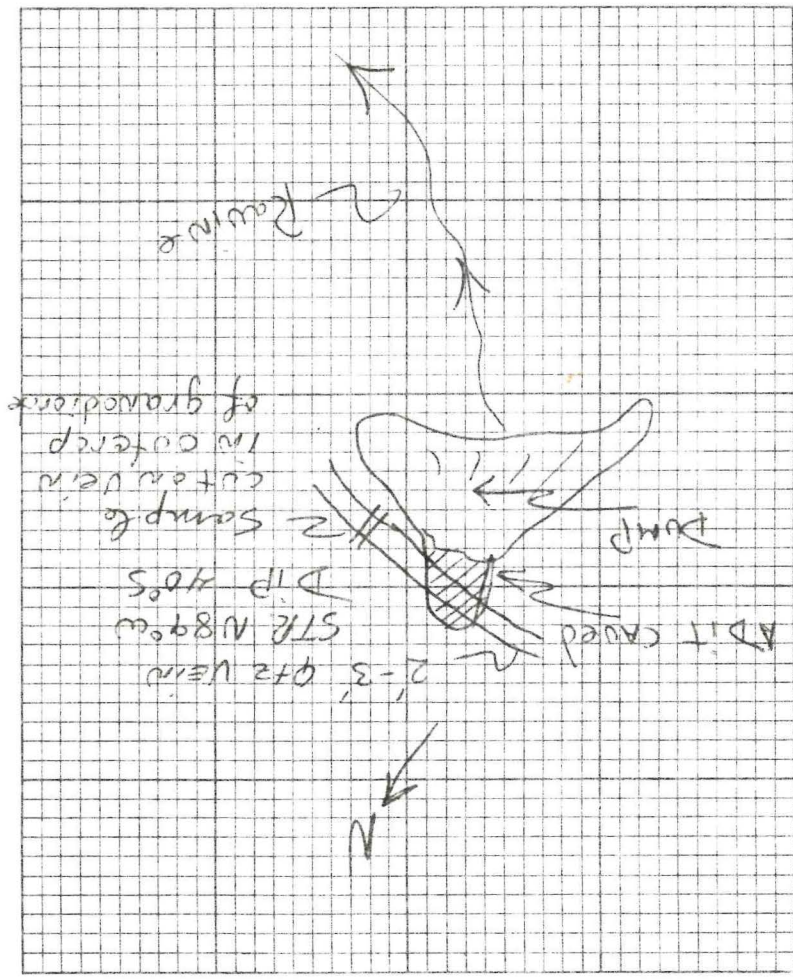 N
2'-3' Qtz vein
STR N89°W
DIP 40°S
ADIT CAVED
Sample
cut on vein
in outcrop
of granodiorite
DUMP
Ravine